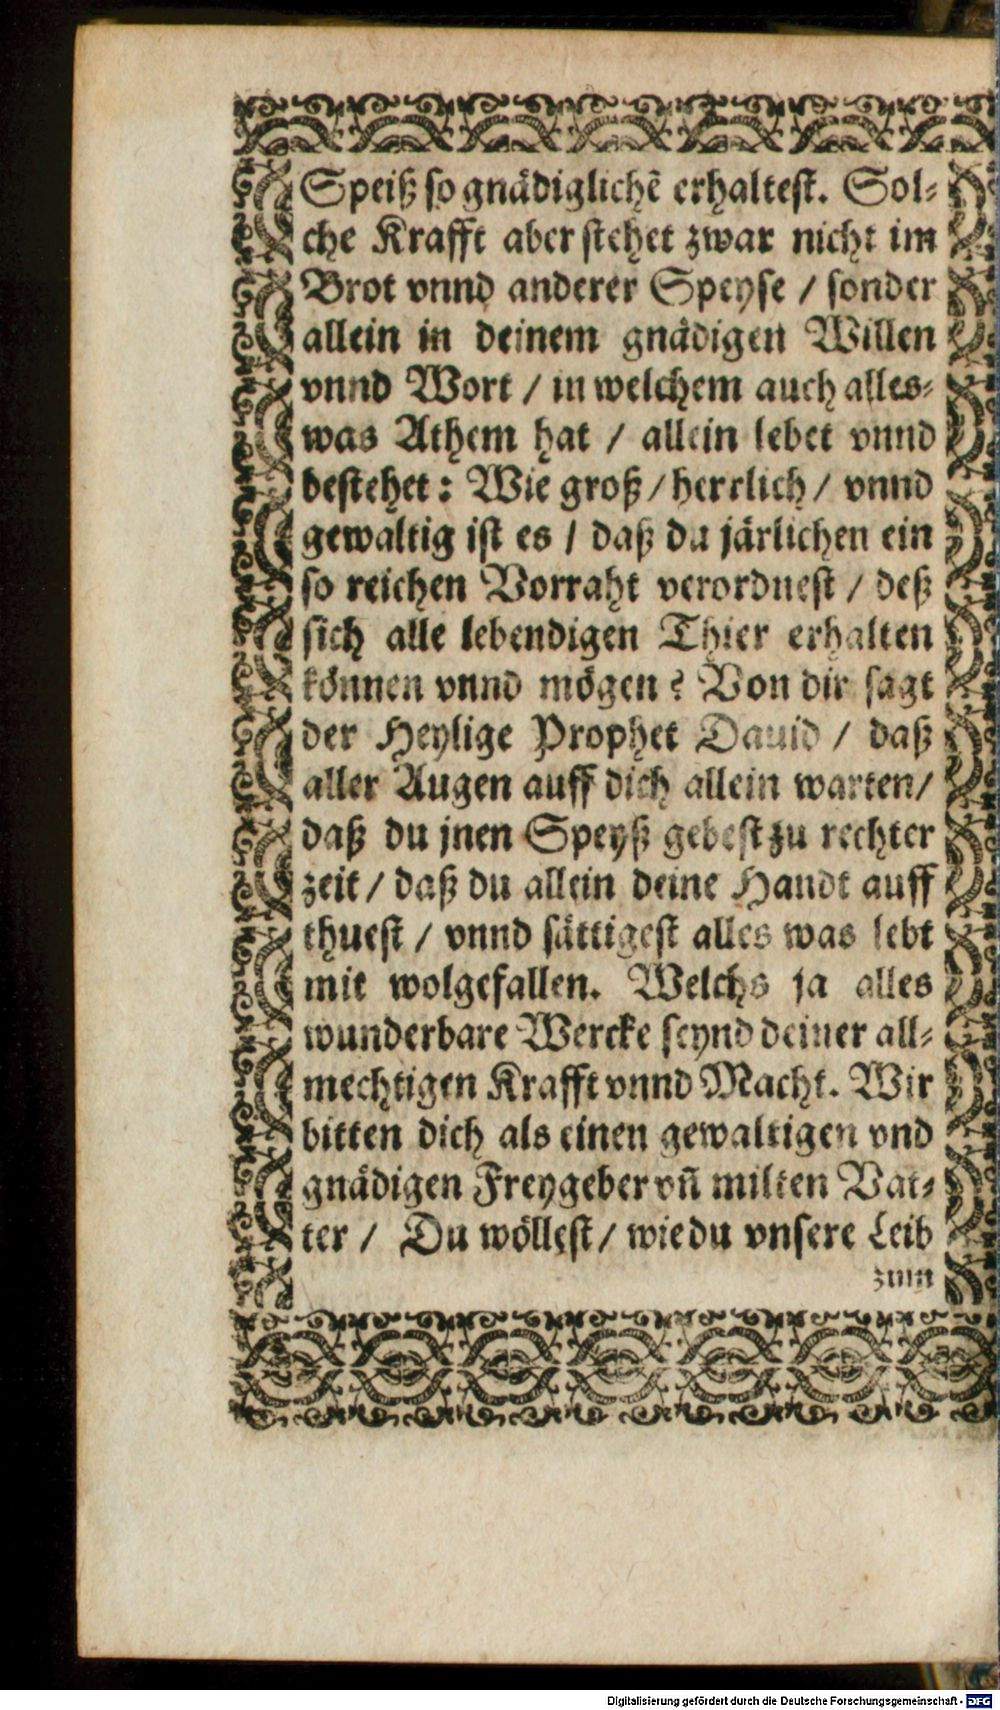 Speiß so gnädiglichẽ erhaltest. Sol-
che Krafft aber stehet zwar nicht im
Brot vnnd anderer Speyse / sonder
allein in deinem gnädigen Willen
vnnd Wort / in welchem auch alles-
was Athem hat / allein lebet vnnd
bestehet: Wie groß / herrlich / vnnd
gewaltig ist es / daß du järlichen ein
so reichen Vorraht verordnest / deß
sich alle lebendigen Thier erhalten
können vnnd mögen? Von dir sagt
der Heylige Prophet Dauid / daß
aller Augen auff dich allein warten/
daß du jnen Speyß gebest zu rechter
zeit / daß du allein deine Handt auff
thuest / vnnd sättigest alles was lebt
mit wolgefallen. Welchs ja alles
wunderbare Wercke seynd deiner all-
mechtigen Krafft vnnd Macht. Wir
bitten dich als einen gewaltigen vnd
gnädigen Freygeber vñ milten Vat-
ter / Du wöllest / wie du vnsere Leib
zum
Digitalisierung gefördert durch die Deutsche Forschungsgemeinschaft - DFG